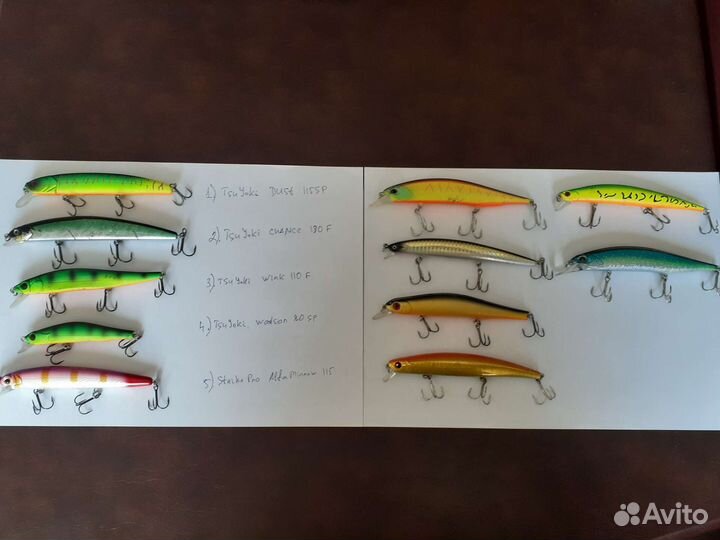 1) TsuYoki DUST 115SP
2) TsuYoki CHANCE 130F
3) TsuYoki Wink 110F
4) TsuYoki Watson 80 SP
5) Strike Pro Alfa Minnow 115
Avito